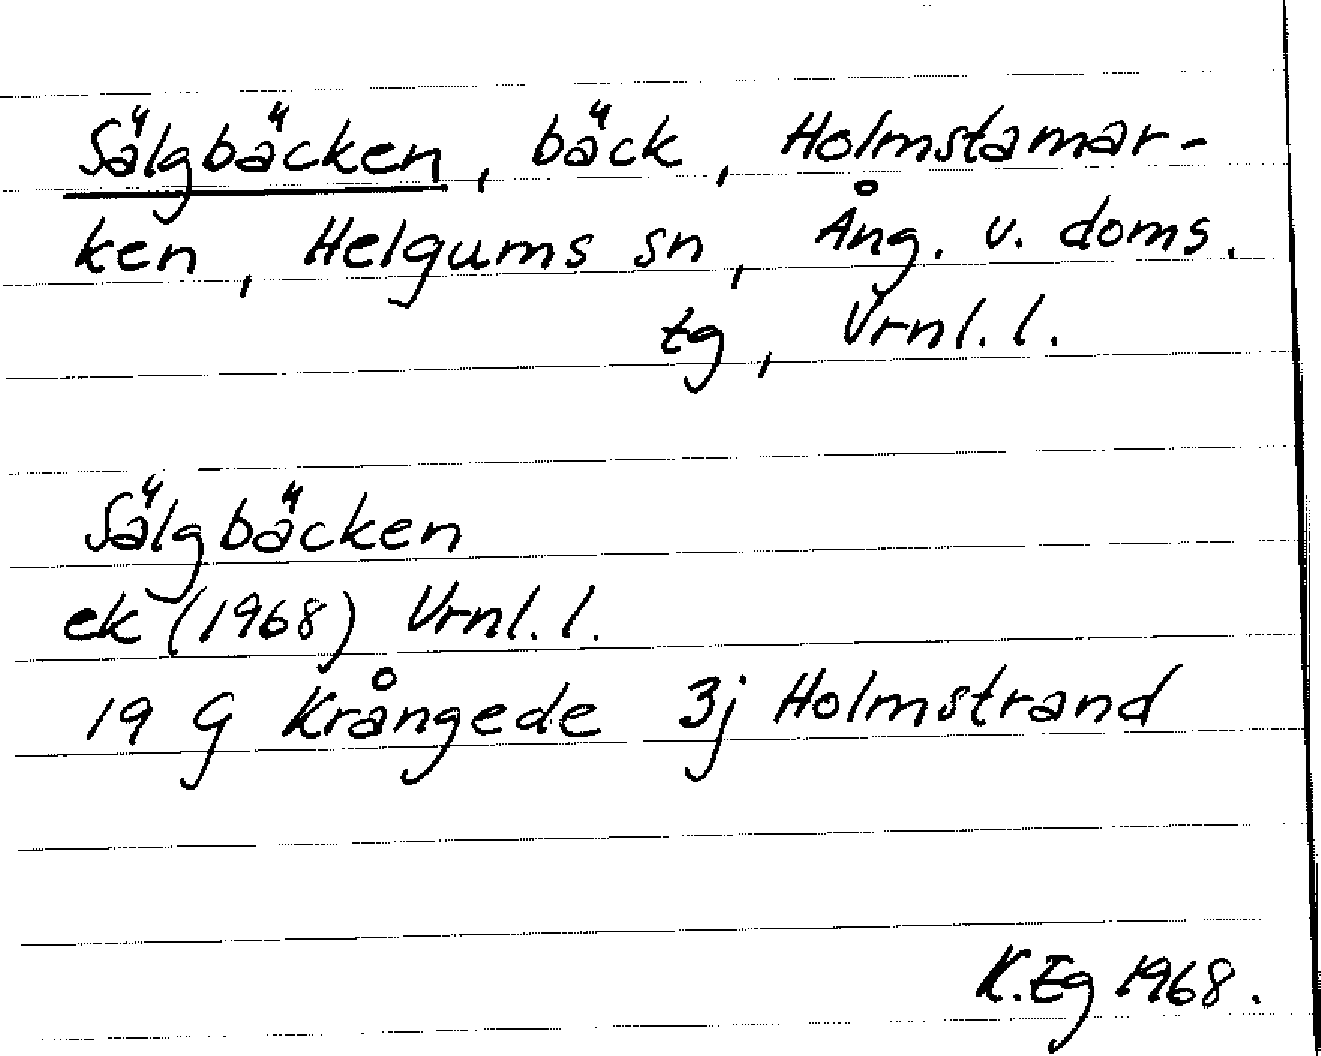 Sälgbäcken, bäck, Holmstamar-
ken, Helgums sn, Ång. v. doms.
tg, Vrnl. l.
Sälgbäcken
ek (1968) Vrnl. l.
19 G Krångede 3j Holmstrand
K. Eg 1968.